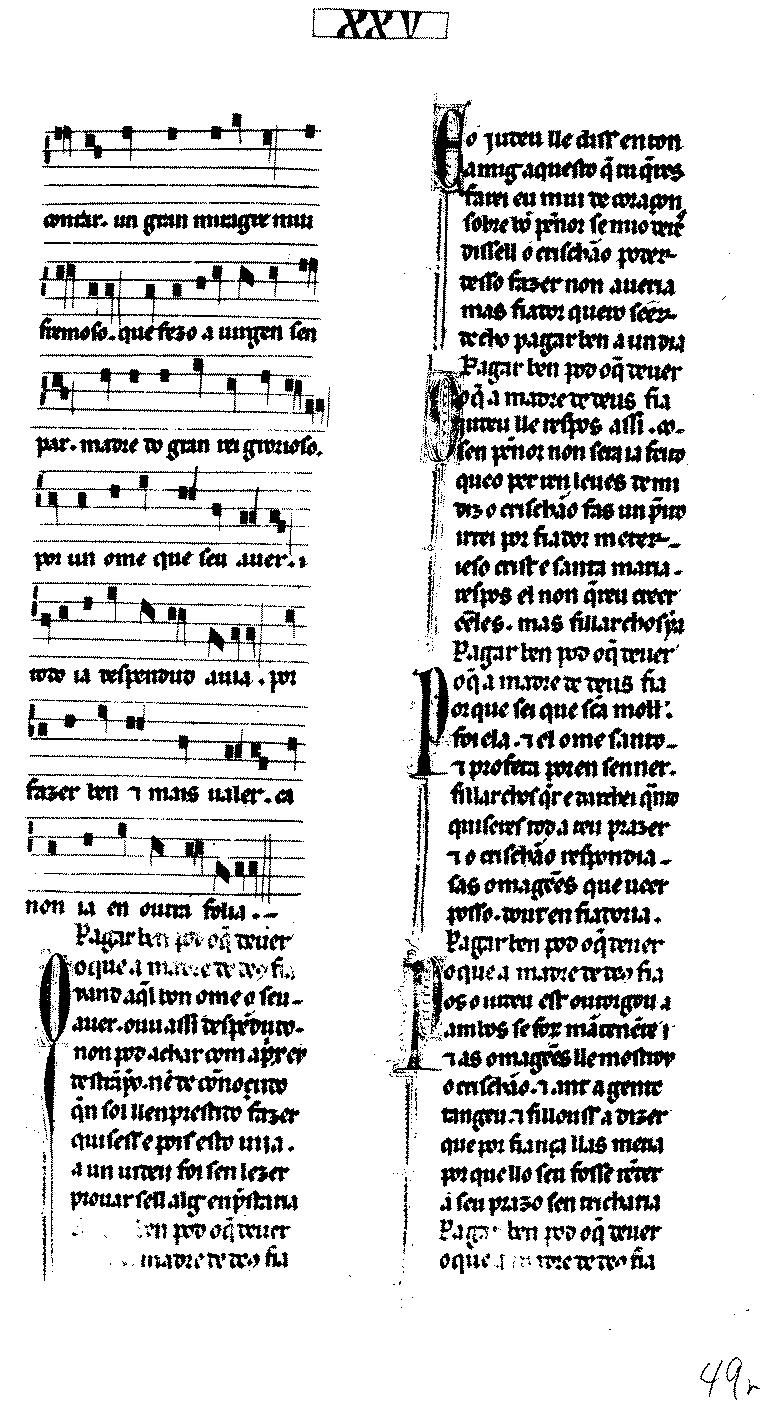 XXV
contar. un gran miragre mui
fremoso. que fezo a uirgen sen
par. madre do gran rei grorioso.
por un ome que seu auer. i
todo ia despendud auia. por
fazer ben ⁊ mais ualer. ca
non ia en outra folia.
Pagar ben pod oq̄ deuer
o que a madre de de9 fia
Quand aq̄l bon ome o seu
auer. ouu assi despēdudo.
non pod achar com ap̄nder
destrāyo. nē de cōnoçudo
q̄n sol llenprestido fazer
quisess e pois esto uiia.
a un iudeu foi sen lezer
prouar sell alg enp̄staria
ben pod oq̄ deuer
madre de de9 fia
Eo iudeu lle diss enton
amig aquesto q̄ tu q̄res
farei eu mui de coraçon
sobre bō pēnor se mio deres
dissell o crischāo poder
desso fazer non aueria
mas fiador quero seer
de cho pagar ben a un dia
Pagar ben pod oq̄ deuer
oq̄ a madre de deus fia
O iudeu lle respos assi. o
sen pēnor non sera ia feito
queo per ren leues de mi
diz o crischāo fas un p̄ito
irei por fiador meter
ieso crist e santa maria.
respos el non q̄reu creer
ēeles. mas fillarchosỹa
Pagar ben pod oq̄ deuer
oq̄ a madre de deus fia
Porque sei que sc̄a moll'.
foi ela. ⁊ el ome santo
⁊ profeta poren senner.
fillarchos q̄r e darchei q̄nto
quiseres tod a teu prazer
⁊ o crischāo respondia
sas omagēes que ueer
posso. dour en fiadoria.
Pagar ben pod oq̄ deuer
o que a madre de de9 fia
Pos o iudeu est outorgou a
ambos se forō māteneñte i
⁊ as omagēes lle mostrou
o crischāo. ⁊ ant a gente
tangeu. ⁊ fillouss a dizer
que por fiança llas metia
por que llo seu fosse rēder
a seu prazo sen tricharia
Pagar ben pod oq̄ deuer
o que a madre de de9 fia
49r